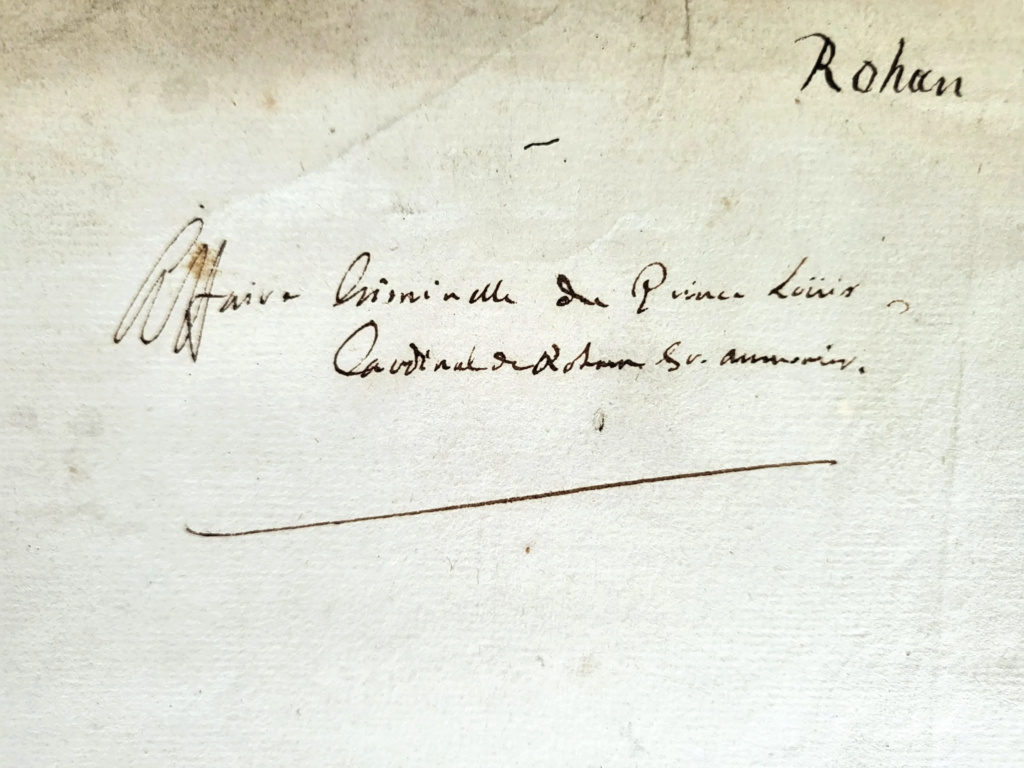 Rohan
Affaire Criminelle du Prince Loüis
Cardinal de Rohan Gr. aumonier.